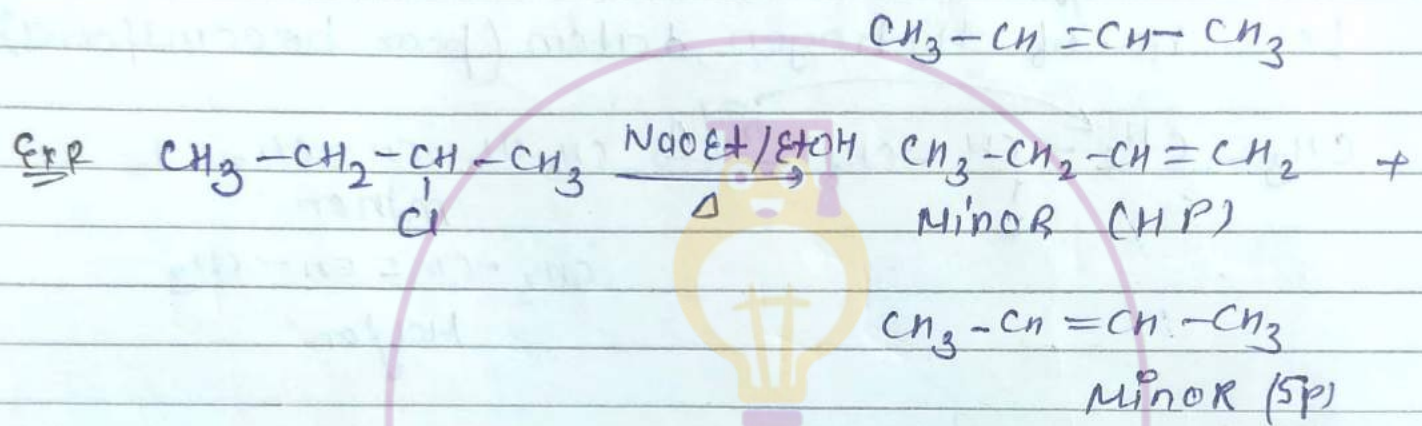 CH3-CH=CH-CH3
Exp CH3-CH2-CH-CH3 NaOEt/EtOH CH3-CH2-CH=CH2 +
Cl Δ MinOR (HP)
CH3-CH=CH-CH3
MinOR (SP)